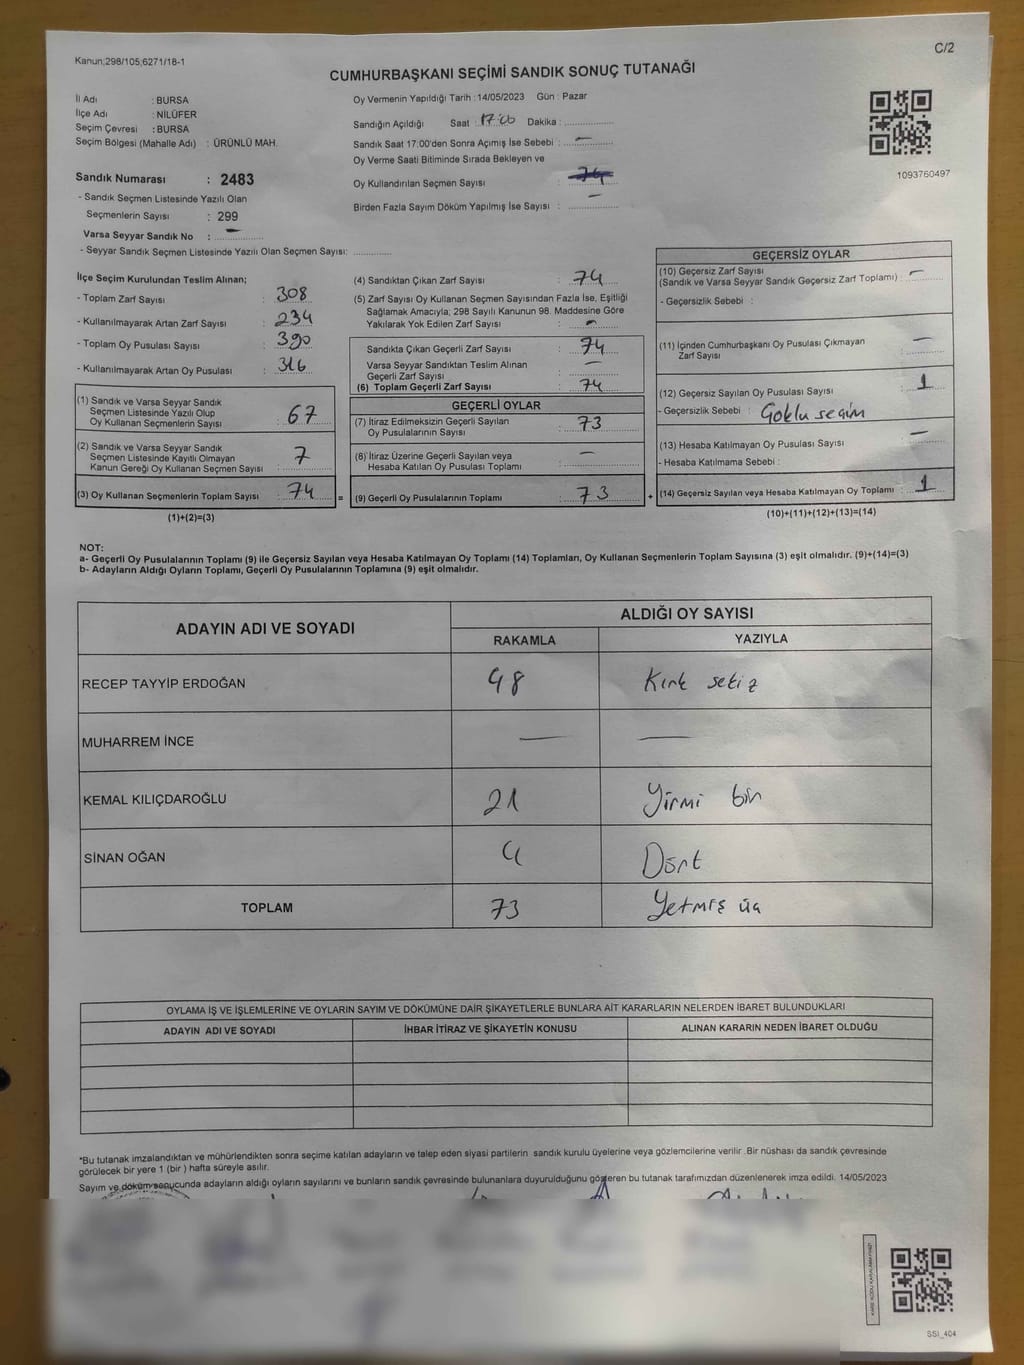 Kanun;298/105;6271/18-1
C/2
CUMHURBAŞKANI SEÇİMİ SANDIK SONUÇ TUTANAĞI
İl Adı : BURSA
İlçe Adı : NİLÜFER
Seçim Çevresi : BURSA
Seçim Bölgesi (Mahalle Adı) : ÜRÜNLÜ MAH.
Sandık Numarası : 2483
- Sandık Seçmen Listesinde Yazılı Olan
Seçmenlerin Sayısı : 299
Varsa Seyyar Sandık No : —
- Seyyar Sandık Seçmen Listesinde Yazılı Olan Seçmen Sayısı:
Oy Vermenin Yapıldığı Tarih :14/05/2023 Gün : Pazar
Sandığın Açıldığı Saat : 17:00 Dakika :
Sandık Saat 17:00'den Sonra Açımış İse Sebebi : —
Oy Verme Saati Bitiminde Sırada Bekleyen ve
Oy Kullandırılan Seçmen Sayısı : 74
Birden Fazla Sayım Döküm Yapılmış İse Sayısı : —
1093760497
İlçe Seçim Kurulundan Teslim Alınan;
- Toplam Zarf Sayısı : 308
- Kullanılmayarak Artan Zarf Sayısı : 234
- Toplam Oy Pusulası Sayısı : 390
- Kullanılmayarak Artan Oy Pusulası : 316
(1) Sandık ve Varsa Seyyar Sandık
Seçmen Listesinde Yazılı Olup
Oy Kullanan Seçmenlerin Sayısı : 67
(2) Sandık ve Varsa Seyyar Sandık
Seçmen Listesinde Kayıtlı Olmayan
Kanun Gereği Oy Kullanan Seçmen Sayısı : 7
(3) Oy Kullanan Seçmenlerin Toplam Sayısı : 74 =
(1)+(2)=(3)
(4) Sandıktan Çıkan Zarf Sayısı : 74
(5) Zarf Sayısı Oy Kullanan Seçmen Sayısından Fazla İse, Eşitliği
Sağlamak Amacıyla; 298 Sayılı Kanunun 98. Maddesine Göre
Yakılarak Yok Edilen Zarf Sayısı : —
Sandıkta Çıkan Geçerli Zarf Sayısı : 74
Varsa Seyyar Sandıktan Teslim Alınan
Geçerli Zarf Sayısı : —
(6) Toplam Geçerli Zarf Sayısı : 74
GEÇERLİ OYLAR
(7) İtiraz Edilmeksizin Geçerli Sayılan : 73
Oy Pusulalarının Sayısı
(8) İtiraz Üzerine Geçerli Sayılan veya : —
Hesaba Katılan Oy Pusulası Toplamı
(9) Geçerli Oy Pusulalarının Toplamı : 73 +
GEÇERSİZ OYLAR
(10) Geçersiz Zarf Sayısı
(Sandık ve Varsa Seyyar Sandık Geçersiz Zarf Toplamı) : —
- Geçersizlik Sebebi :
(11) İçinden Cumhurbaşkanı Oy Pusulası Çıkmayan : —
Zarf Sayısı
(12) Geçersiz Sayılan Oy Pusulası Sayısı : 1
- Geçersizlik Sebebi : Çoklu seçim
(13) Hesaba Katılmayan Oy Pusulası Sayısı : —
- Hesaba Katılmama Sebebi :
(14) Geçersiz Sayılan veya Hesaba Katılmayan Oy Toplamı : 1
(10)+(11)+(12)+(13)=(14)
NOT:
a- Geçerli Oy Pusulalarının Toplamı (9) ile Geçersiz Sayılan veya Hesaba Katılmayan Oy Toplamı (14) Toplamları, Oy Kullanan Seçmenlerin Toplam Sayısına (3) eşit olmalıdır. (9)+(14)=(3)
b- Adayların Aldığı Oyların Toplamı, Geçerli Oy Pusulalarının Toplamına (9) eşit olmalıdır.
ADAYIN ADI VE SOYADI
ALDIĞI OY SAYISI
RAKAMLA YAZIYLA
RECEP TAYYİP ERDOĞAN 48 Kırk sekiz
MUHARREM İNCE — —
KEMAL KILIÇDAROĞLU 21 Yirmi bir
SİNAN OĞAN 4 Dört
TOPLAM 73 Yetmiş üç
OYLAMA İŞ VE İŞLEMLERİNE VE OYLARIN SAYIM VE DÖKÜMÜNE DAİR ŞİKAYETLERLE BUNLARA AİT KARARLARIN NELERDEN İBARET BULUNDUKLARI
ADAYIN ADI VE SOYADI İHBAR İTİRAZ VE ŞİKAYETİN KONUSU ALINAN KARARIN NEDEN İBARET OLDUĞU
*Bu tutanak imzalandıktan ve mühürlendikten sonra seçime katılan adayların ve talep eden siyasi partilerin sandık kurulu üyelerine veya gözlemcilerine verilir .Bir nüshası da sandık çevresinde
görülecek bir yere 1 (bir ) hafta süreyle asılır.
Sayım ve döküm sonucunda adayların aldığı oyların sayılarını ve bunların sandık çevresinde bulunanlara duyurulduğunu gösteren bu tutanak tarafımızdan düzenlenerek imza edildi. 14/05/2023
SSI_404